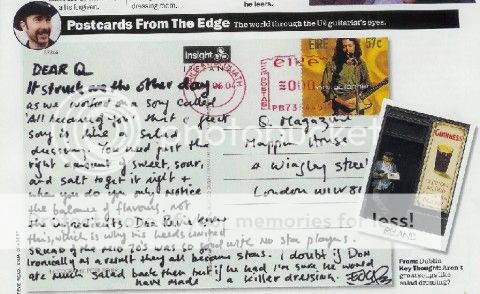 Postcards From The Edge The world through the U2 guitarist's eyes.
he is given.
dressing room.
he leers.
DEAR Q
It struck me the other day
as we worked on a song called
'All because of you' that a great
song is like a salad
dressing. You need just the
right amount of sweet, sour,
and salt to get it right &
when you do you only notice
the balance of flavours, not
the ingredients. Don
this, which is why his
squad of the mid 70's was so great with no star players.
Ironically as a result they all became stars. I doubt if Don
ate much salad back then but if he had I'm sure he would
have made a killer dressing. EDGE
Insight
éire
ÉIRE 57c
0.00
PB73
Q Magazine
Mappin House
4 Winsley Street
London W1W 8
GUINNESS
photobucket
memories for less!
From: Dublin
Key Thought: Aren't
great songs like
salad dressing?